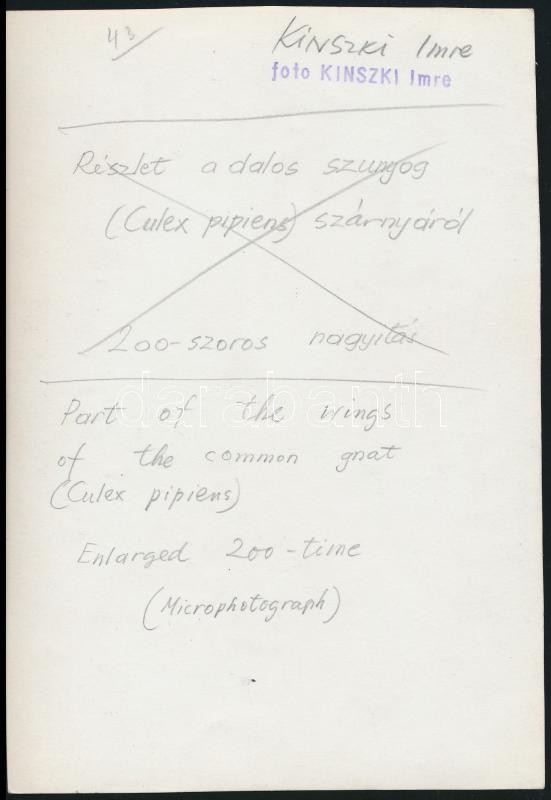 43
KINSZKI Imre
foto KINSZKI Imre
Részlet a dalos szunyog
(Culex pipiens) szárnyáról
200-szoros nagyítás
darabanth
Part of the wings
of the common gnat
(Culex pipiens)
Enlarged 200-time
(Microphotograph)